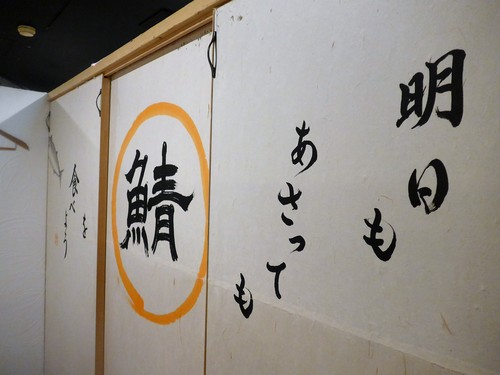 明日も
あさっても
鯖
を
食べよう